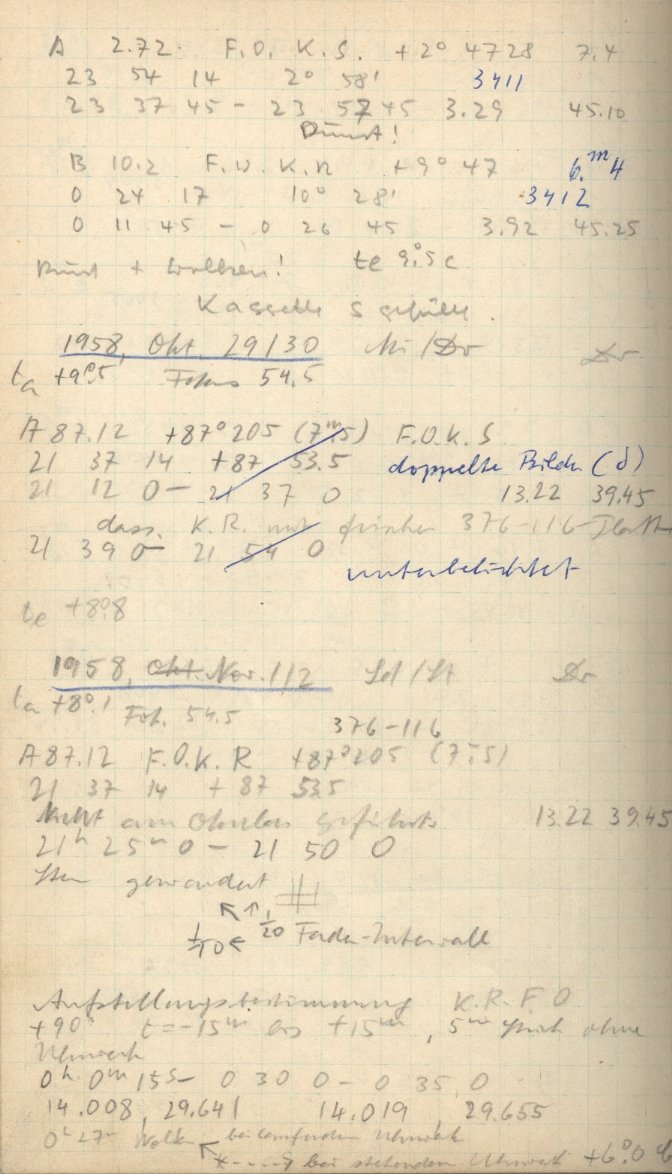 A 2.72. F.O. K.S. +2° 4728 7,4
23 54 14 2° 58' 3411
23 37 45 – 23 57 45 3.29 45.10
Dunst!
B 10.2 F.W. K.R +9° 47 6.ᵐ4
0 24 17 10° 28' 3412
0 11 45 – 0 26 45 3.92 45.25
Dunst + Wolken! te 9°,5 C
Kassette S gefüllt.
1958, Okt. 29/30 /Dr Dr
ta +9°,5 Fokus 54,5
A 87.12 +87° 205 (7ᵐ,5) F.O.K.S
21 37 14 +87 53.5 doppelte Bilder (δ)
21 12 0 – 21 37 0 13.22 39.45
dass. K.R. mit frischer 376-116-Platte
21 39 0 – 21 54 0
unterbelichtet
te +8°,8
1958, Okt. Nov. 1/2 Dr
ta +8°.1 Fok. 54.5
376-116
A 87.12 F.O.K.R +87° 205 (7ᵐ,5)
21 37 14 + 87 53.5
Nicht am geführt 13.22 39.45
21ʰ 25ᵐ 0 – 21 50 0
Stern gewandert
1/10 1/20 Faden-Intervall
Aufstellungsbestimmung K.R. F.O
+90° t = -15ᵐ bis +15ᵐ, 5ᵐ ohne
Uhrwerk
0ʰ 0ᵐ 15s – 0 30 0 – 0 35 0
14.008, 29.641 14.019 29.655
0ʰ 27ᵐ Wolken bei laufendem Uhrwerk
bei stehendem Uhrwerk +6°.0